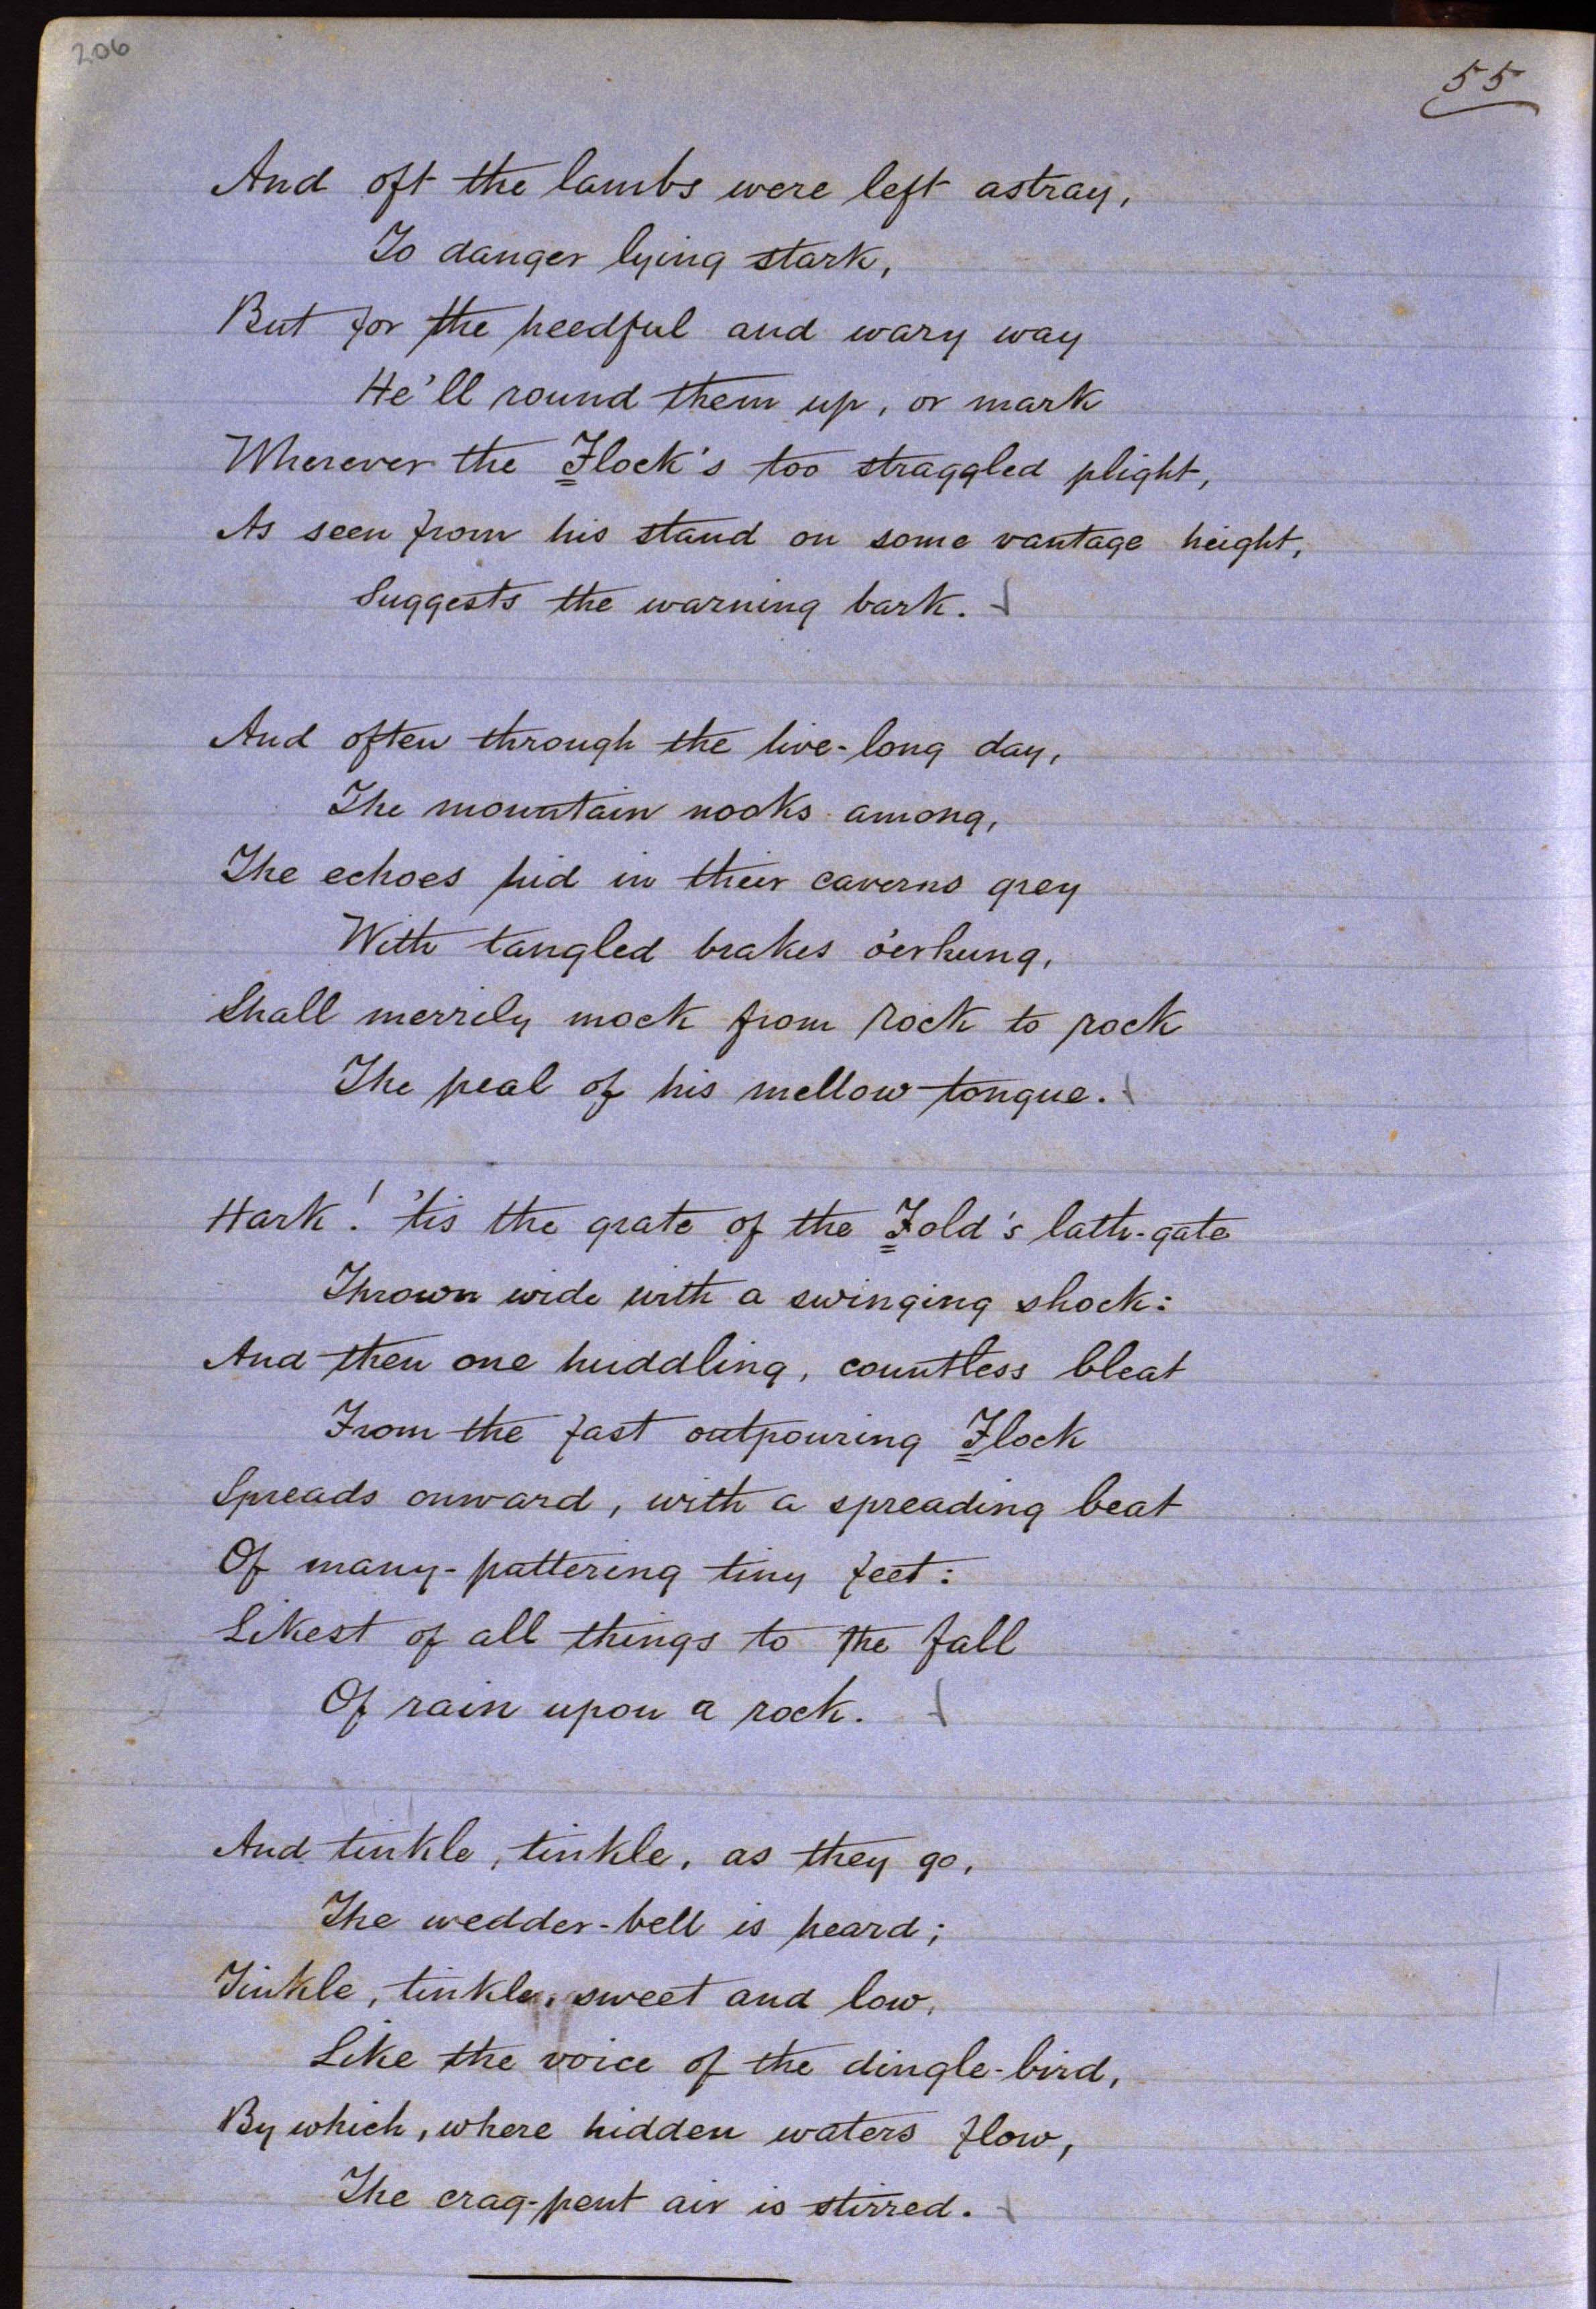 206
55
And oft the lambs were left astray,
To danger lying stark,
But for the heedful and wary way
He'll round them up, or mark
Wherever the Flock's too straggled plight,
As seen from his stand on some vantage height,
Suggests the warning bark.
And often through the live-long day,
The mountain nooks among,
The echoes hid in their caverns grey
With tangled brakes o'erhung,
Shall merrily mock from rock to rock
The peal of his mellow tongue.
Hark! 'tis the grate of the Fold's lath-gate
Thrown wide with a swinging shock:
And then one huddling, countless bleat
From the fast outpouring Flock
Spreads onward, with a spreading beat
Of many-pattering tiny feet:
Likest of all things to the fall
Of rain upon a rock.
And tinkle, tinkle, as they go,
The wedder-bell is heard;
Tinkle, tinkle, sweet and low,
Like the voice of the dingle-bird,
By which, where hidden waters flow,
The crag-pent air is stirred.